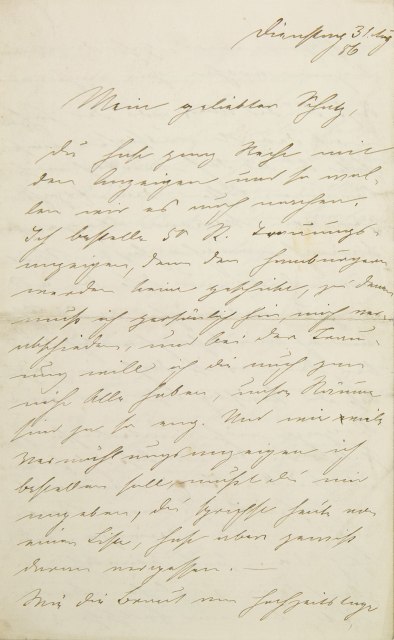 Dienstag 31. Aug
86
Mein geliebter Schatz,
du hast ganz Recht mit
den Anzeigen und so wol-
len wir es auch machen.
Ich bestelle 50 St. Trauungs-
anzeigen, denn den Hamburgern
werden keine geschickt, zu denen
muß ich persönlich hin, mich ver-
abschieden, und bei der Trau-
ung will ich die auch gar
nicht Alle haben, unsre Räume
sind ja so eng. Und wie viele
Vermählungsanzeigen ich
bestellen soll, mußt du mir
angeben, du sprichst heute von
einer Liste, hast aber gewiß
daran vergessen. —
Wie die Braut am Hochzeitstage